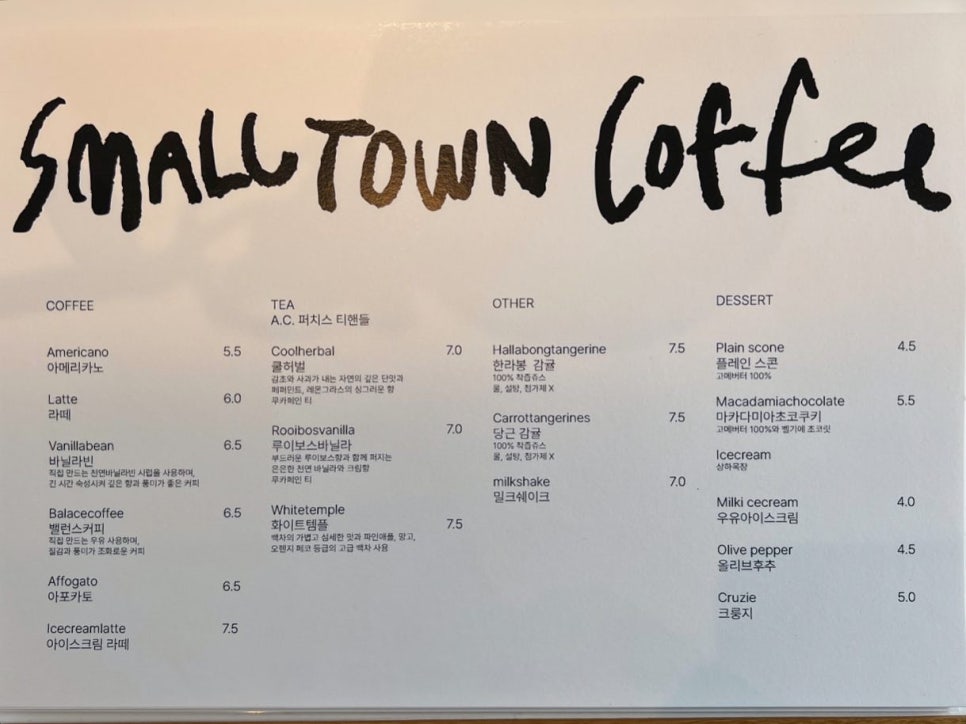 SMALL TOWN Coffee
COFFEE
Americano 5.5
아메리카노
Latte 6.0
라떼
Vanillabean 6.5
바닐라빈
직접 만드는 천연바닐라빈 시럽을 사용하며,
긴 시간 숙성시켜 깊은 향과 풍미가 좋은 커피
Balacecoffee 6.5
밸런스커피
직접 만드는 우유 사용하며,
질감과 풍미가 조화로운 커피
Affogato 6.5
아포카토
Icecreamlatte 7.5
아이스크림 라떼
TEA
A.C. 퍼치스 티핸들
Coolherbal 7.0
쿨허벌
감초와 사과가 내는 자연의 깊은 단맛과
페퍼민트, 레몬그라스의 싱그러운 향
무카페인 티
Rooibosvanilla 7.0
루이보스바닐라
부드러운 루이보스향과 함께 퍼지는
은은한 천연 바닐라와 크림향
무카페인 티
Whitetemple 7.5
화이트템플
백차의 가볍고 섬세한 맛과 파인애플, 망고,
오렌지 페코 등급의 고급 백차 사용
OTHER
Hallabongtangerine 7.5
한라봉 감귤
100% 착즙쥬스
물, 설탕, 첨가제 X
Carrottangerines 7.5
당근 감귤
100% 착즙쥬스
물, 설탕, 첨가제 X
milkshake 7.0
밀크쉐이크
DESSERT
Plain scone 4.5
플레인 스콘
고메버터 100%
Macadamiachocolate 5.5
마카다미아초코쿠키
고메버터 100%와 벨기에 초코릿
Icecream
상하목장
Milki cecream 4.0
우유아이스크림
Olive pepper 4.5
올리브후추
Cruzie 5.0
크룽지